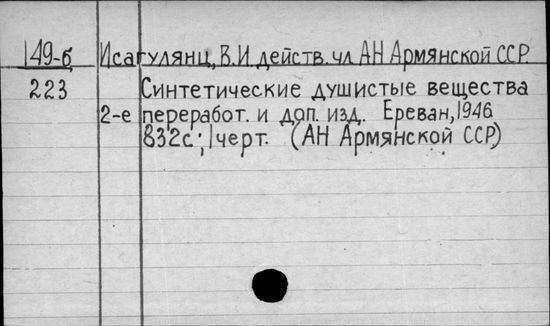 149-б Исагулянц, В.И. действ. чл АН Армянской ССР
223 Синтетические душистые вещества
2-е переработ. и доп. изд. Ереван, 1946
832с.; 1черт. (АН Армянской ССР)